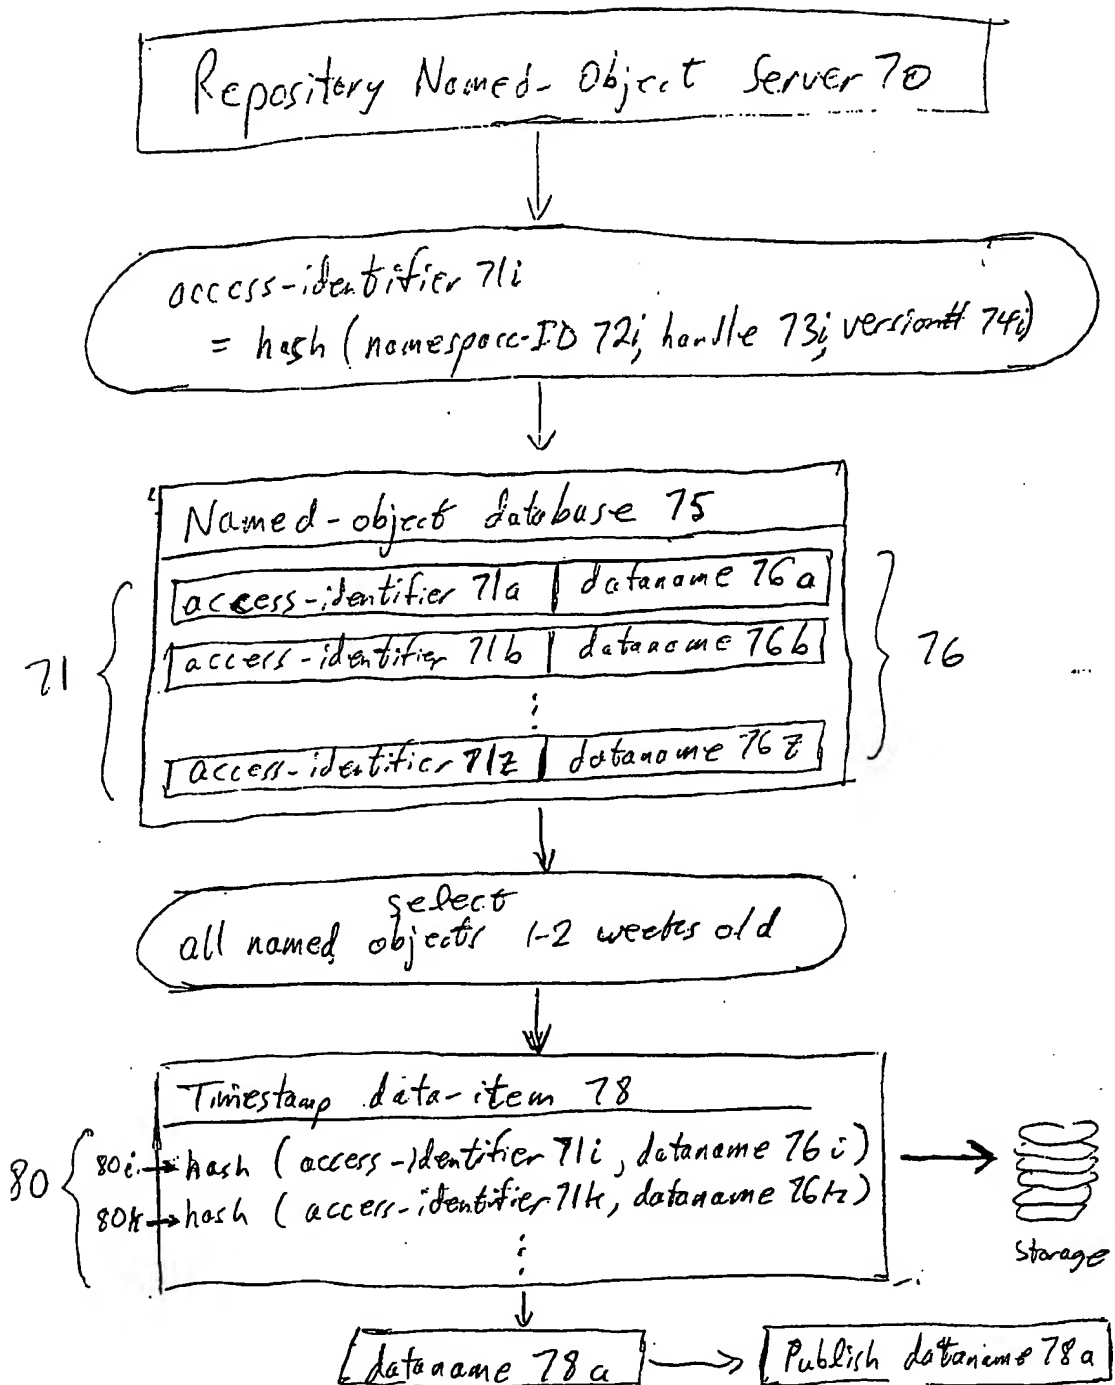 Repository Named-Object Server 70
access-identifier 71i
= hash (namespace-ID 72i, handle 73i, version# 74i)
Named-object database 75
access-identifier 71a dataname 76a
71
access-identifier 71b dataname 76b
76
⋮
access-identifier 71z dataname 76z
select
all named objects 1-2 weeks old
Timestamp data-item 78
80
80i → hash (access-identifier 71i, dataname 76i)
80k → hash (access-identifier 71k, dataname 76k)
⋮
Storage
dataname 78a
Publish dataname 78a